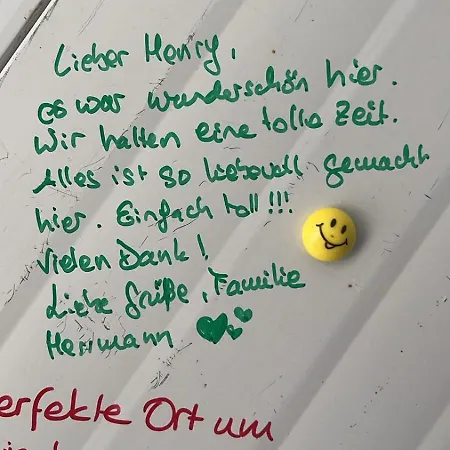 Lieber Henry,
es war wunderschön hier.
Wir hatten eine tolle Zeit.
Alles ist so liebevoll gemacht
hier. Einfach toll!!!
Vielen Dank!
Liebe Grüße, Familie
Herrmann
erfekte Ort um